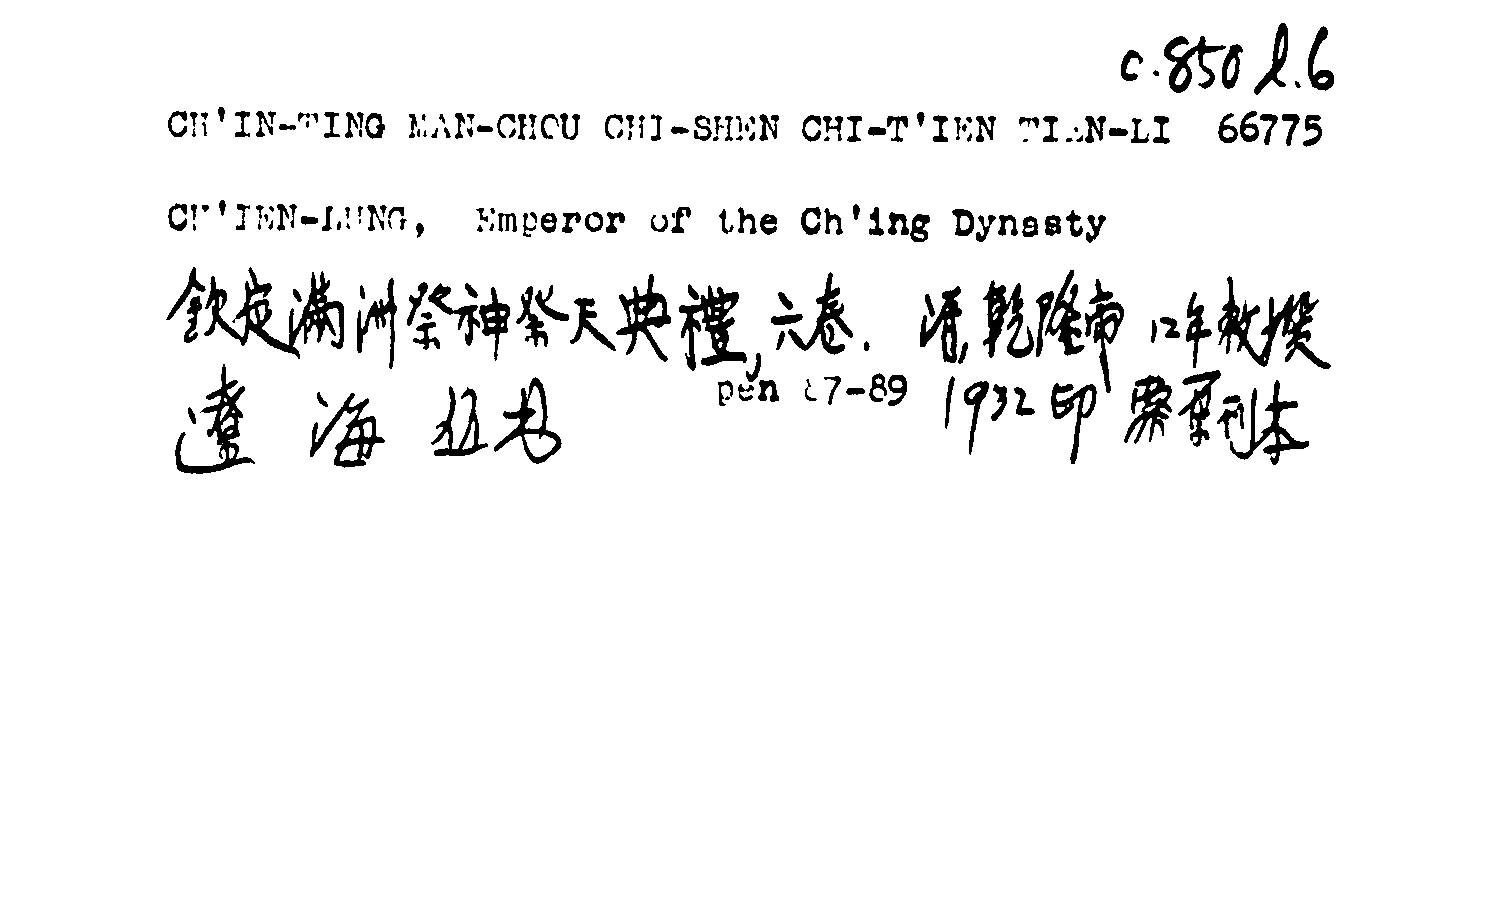 c.850 l.6
CH'IN-TING MAN-CHOU CHI-SHEN CHI-T'IEN TIEN-LI 66775
CH'IEN-LUNG, Emperor of the Ch'ing Dynasty
欽定滿洲祭神祭天典禮, 六卷. 清, 乾隆帝 12年敕撰
遼海 pen 87-89 1932印 刊本